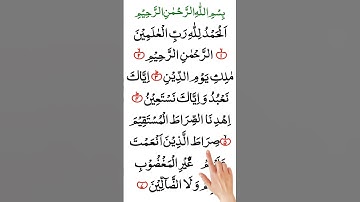 بِسْمِ اللّٰهِ الرَّحْمٰنِ الرَّحِيْمِ
اَلْحَمْدُ لِلّٰهِ رَبِّ الْعٰلَمِيْنَ
﴿١﴾ الرَّحْمٰنِ الرَّحِيْمِ ﴿٢﴾
مٰلِكِ يَوْمِ الدِّيْنِ ﴿٣﴾ اِيَّاكَ
نَعْبُدُ وَ اِيَّاكَ نَسْتَعِيْنُ ﴿٤﴾
اِهْدِنَا الصِّرَاطَ الْمُسْتَقِيْمَ
﴿٥﴾ صِرَاطَ الَّذِيْنَ اَنْعَمْتَ
غَيْرِ الْمَغْضُوْبِ
وَ لَا الضَّآلِّيْنَ